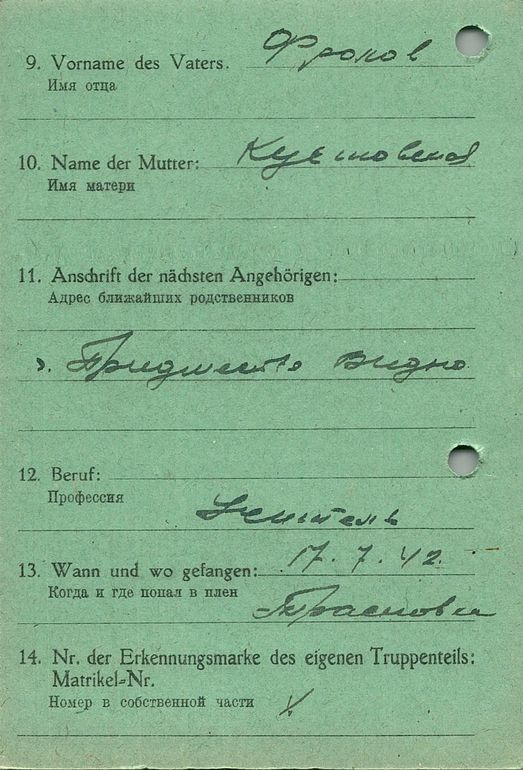 9. Vorname des Vaters. Фролов
Имя отца
10. Name der Mutter:
Имя матери
11. Anschrift der nächsten Angehörigen:
Адрес ближайших родственников
12. Beruf:
Профессия
Учитель
13. Wann und wo gefangen: 17.7.42.
Когда и где попал в плен
14. Nr. der Erkennungsmarke des eigenen Truppenteils:
Matrikel-Nr.
Номер в собственной части